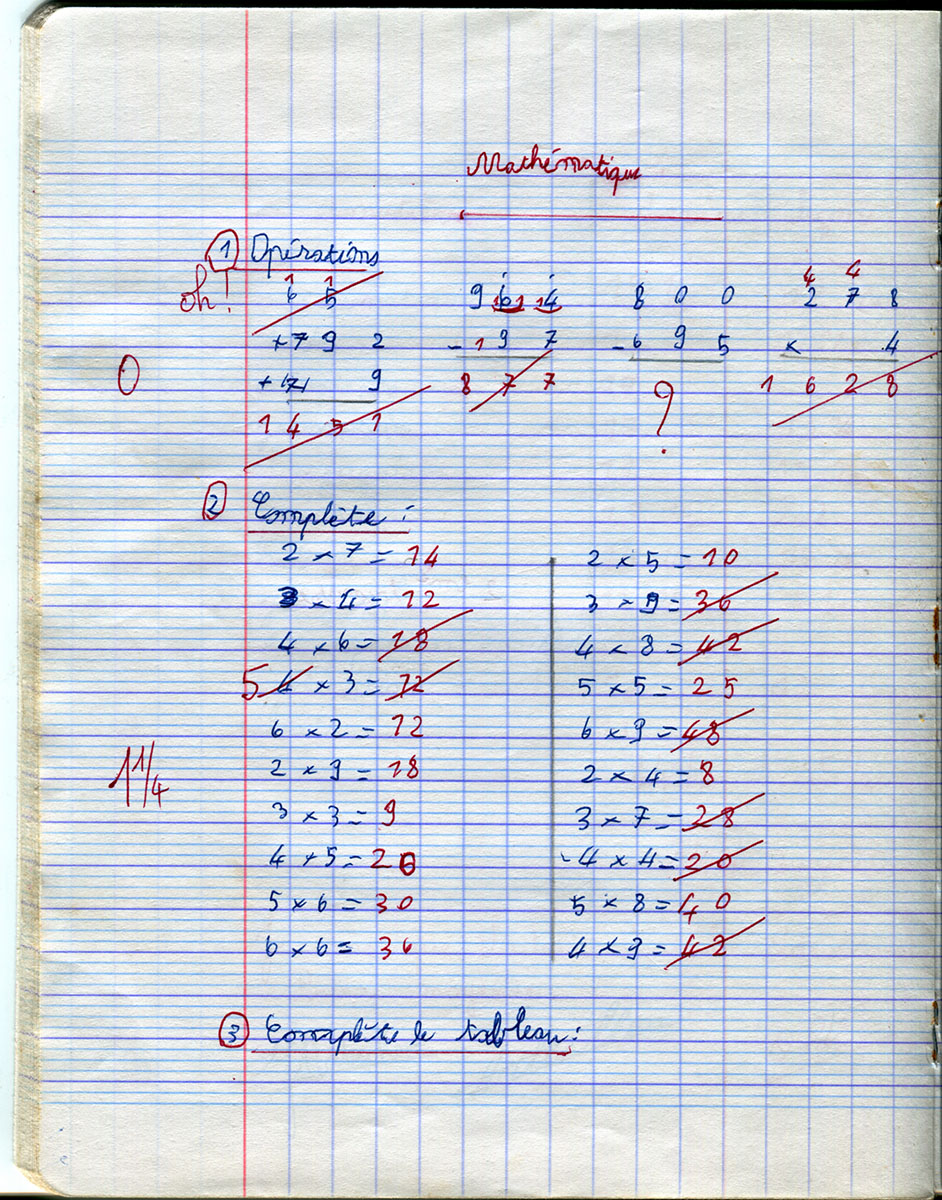 Mathématique
1 Opérations
oh!
1 1 4 4
6 5 9 16 14 8 0 0 2 7 8
+ 7 9 2 - 1 9 7 - 6 9 5 × 4
0 + 9 8 7 7 ? 1 6 2 8
1 4 5 1
2 Complète :
2 × 7 = 14 2 × 5 = 10
3 × 4 = 12 3 × 9 = 36
4 × 6 = 18 4 × 8 = 42
5 4 × 3 = 12 5 × 5 = 25
6 × 2 = 12 6 × 9 = 48
2 × 9 = 18 2 × 4 = 8
11/4
3 × 3 = 9 3 × 7 = 28
4 × 5 = 20 4 × 4 = 20
5 × 6 = 30 5 × 8 = 40
6 × 6 = 36 4 × 9 = 42
3 Complète le tableau :